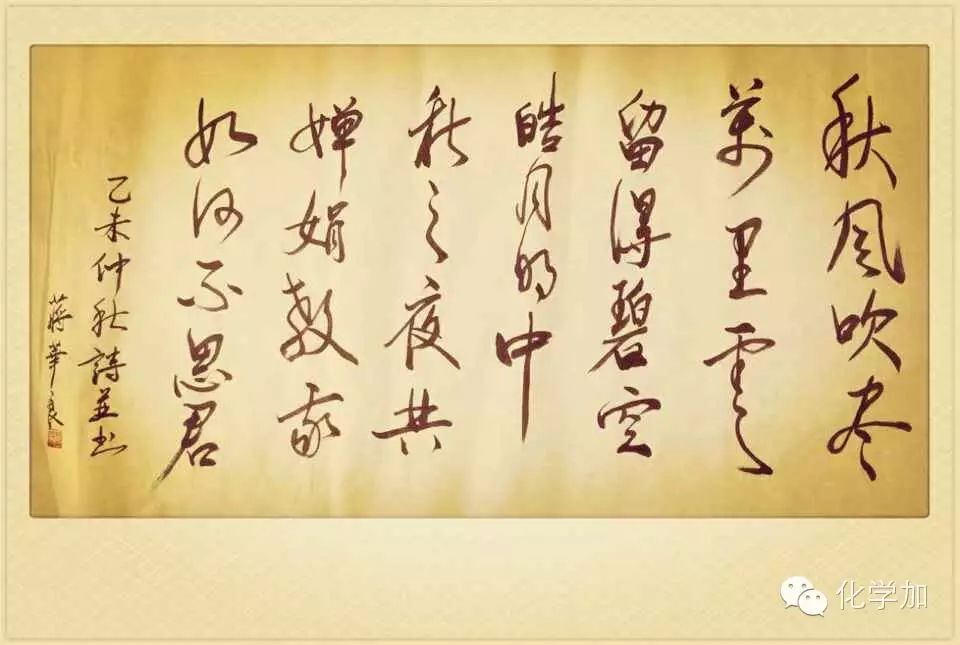 秋风吹尽
萬里雲
留得碧空
皓月明中
秋之夜共
婵娟教我
如何不思君
乙未仲秋詩並书
蒋華良
化学加